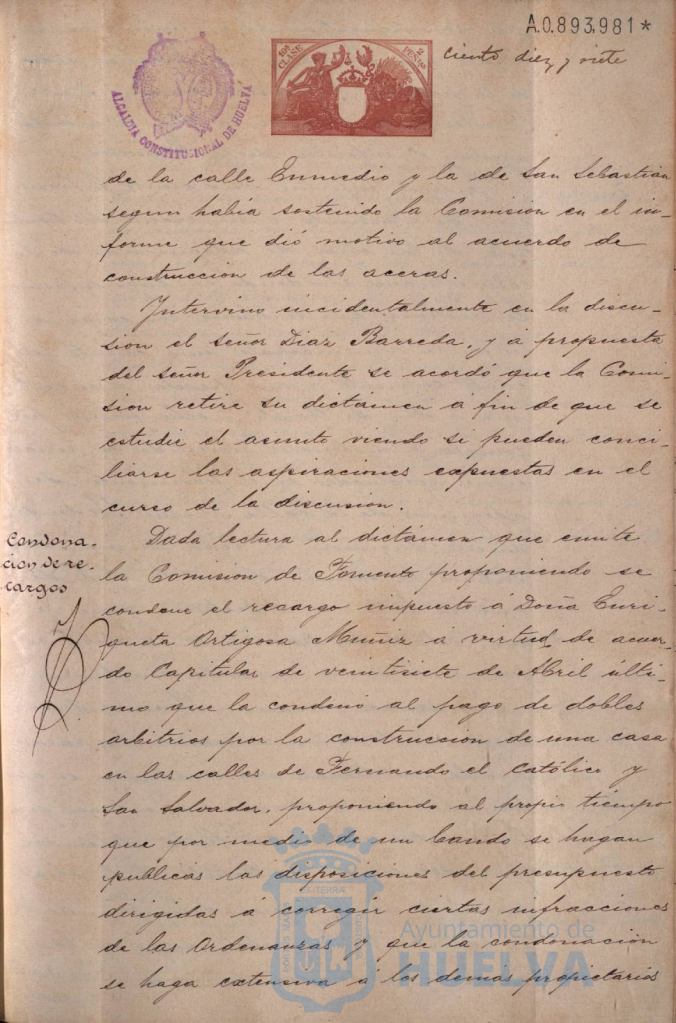 A.0.893.981*
ciento diez y siete
10ª CLASE
2 PESETAS
ALCALDIA CONSTITUCIONAL DE HUELVA
de la calle Enmedio y la de San Sebastián
segun había sostenido la Comision en el in-
forme que dió motivo al acuerdo de
construccion de las aceras.
Intervino incidentalmente en la discu-
sion el señor Diaz Barreda, y á propuesta
del señor Presidente se acordó que la Comi-
sion retire su dictámen á fin de que se
estudie el asunto viendo si pueden conci-
liarse las aspiraciones expuestas en el
curso de la discusion.
Condona-
cion de re-
cargos
Dada lectura al dictámen que emite
la Comision de Fomento proponiendo se
condone el recargo impuesto á Doña Enri-
queta Ortigosa Muñiz á virtud de acuer-
do Capitular de veintisiete de Abril últi-
mo que la condenó al pago de dobles
arbitrios por la construccion de una casa
en las calles de Fernando el Católico y
San Salvador, proponiendo al propio tiempo
que por medio de un bando se hagan
publicas las disposiciones del presupuesto
dirigidas á corregir ciertas infracciones
de las Ordenanzas y que la condonación
se haga extensiva á los demas propietarios
Ayuntamiento de
HUELVA